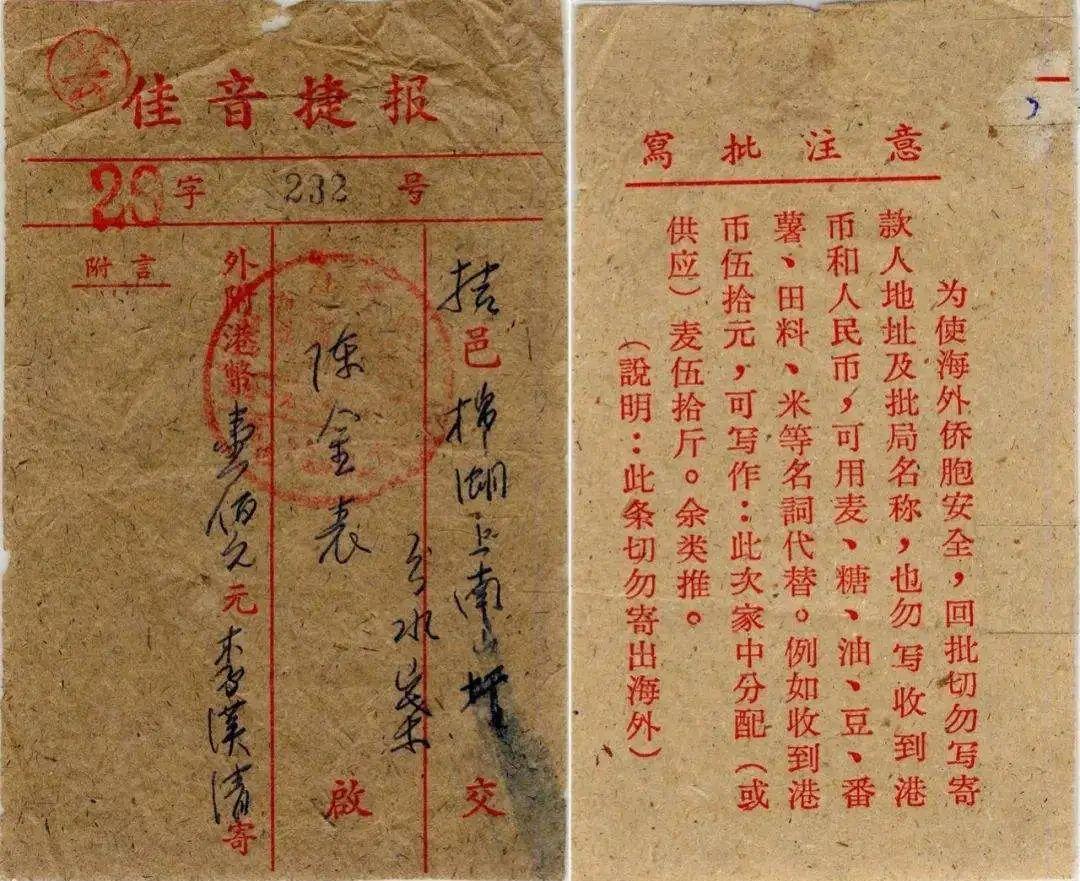 云
佳音捷报
23字 232 号
揭邑棉湖上南山 交
陈金表 啟
外附港幣壹佰元 李漢清寄
附言
寫批注意
为使海外侨胞安全，回批切勿写寄
款人地址及批局名称，也勿写收到港
币和人民币，可用麦、糖、油、豆、番
薯、田料、米等名詞代替。例如收到港
币伍拾元，可写作：此次家中分配（或
供应）麦伍拾斤。余类推。
（說明：此条切勿寄出海外）